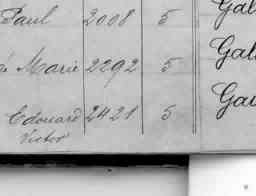 Paul 2008 5 Gal
é Marie 2292 5 Gal
Edouard 2421 5 Gau
Victor